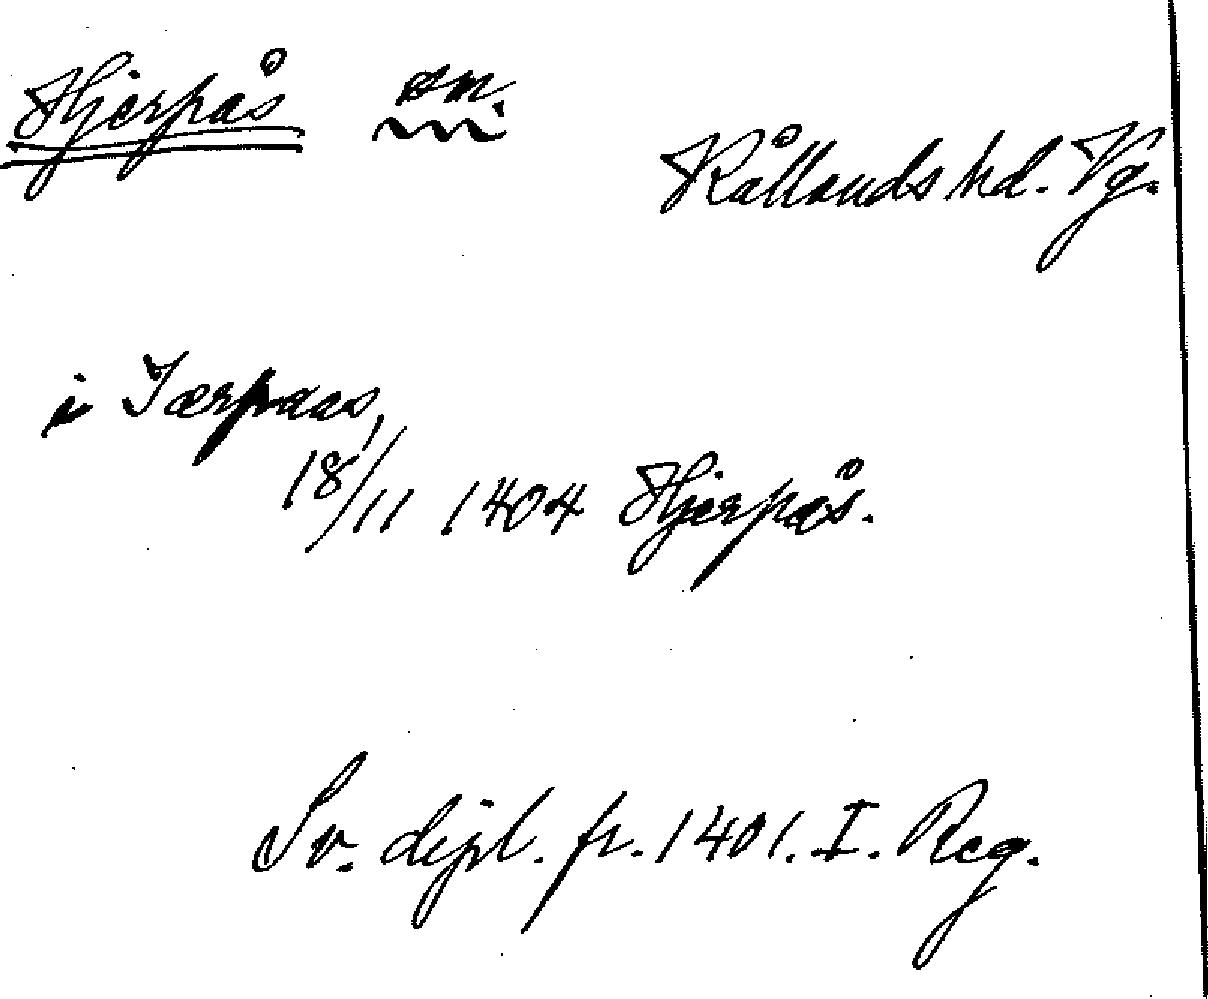 Hjerpås sn.
Kållands hd. Vg.
i Jærpaas,
18/11 1404 Hjerpås.
Sv. dipl. fr. 1401. I. Reg.